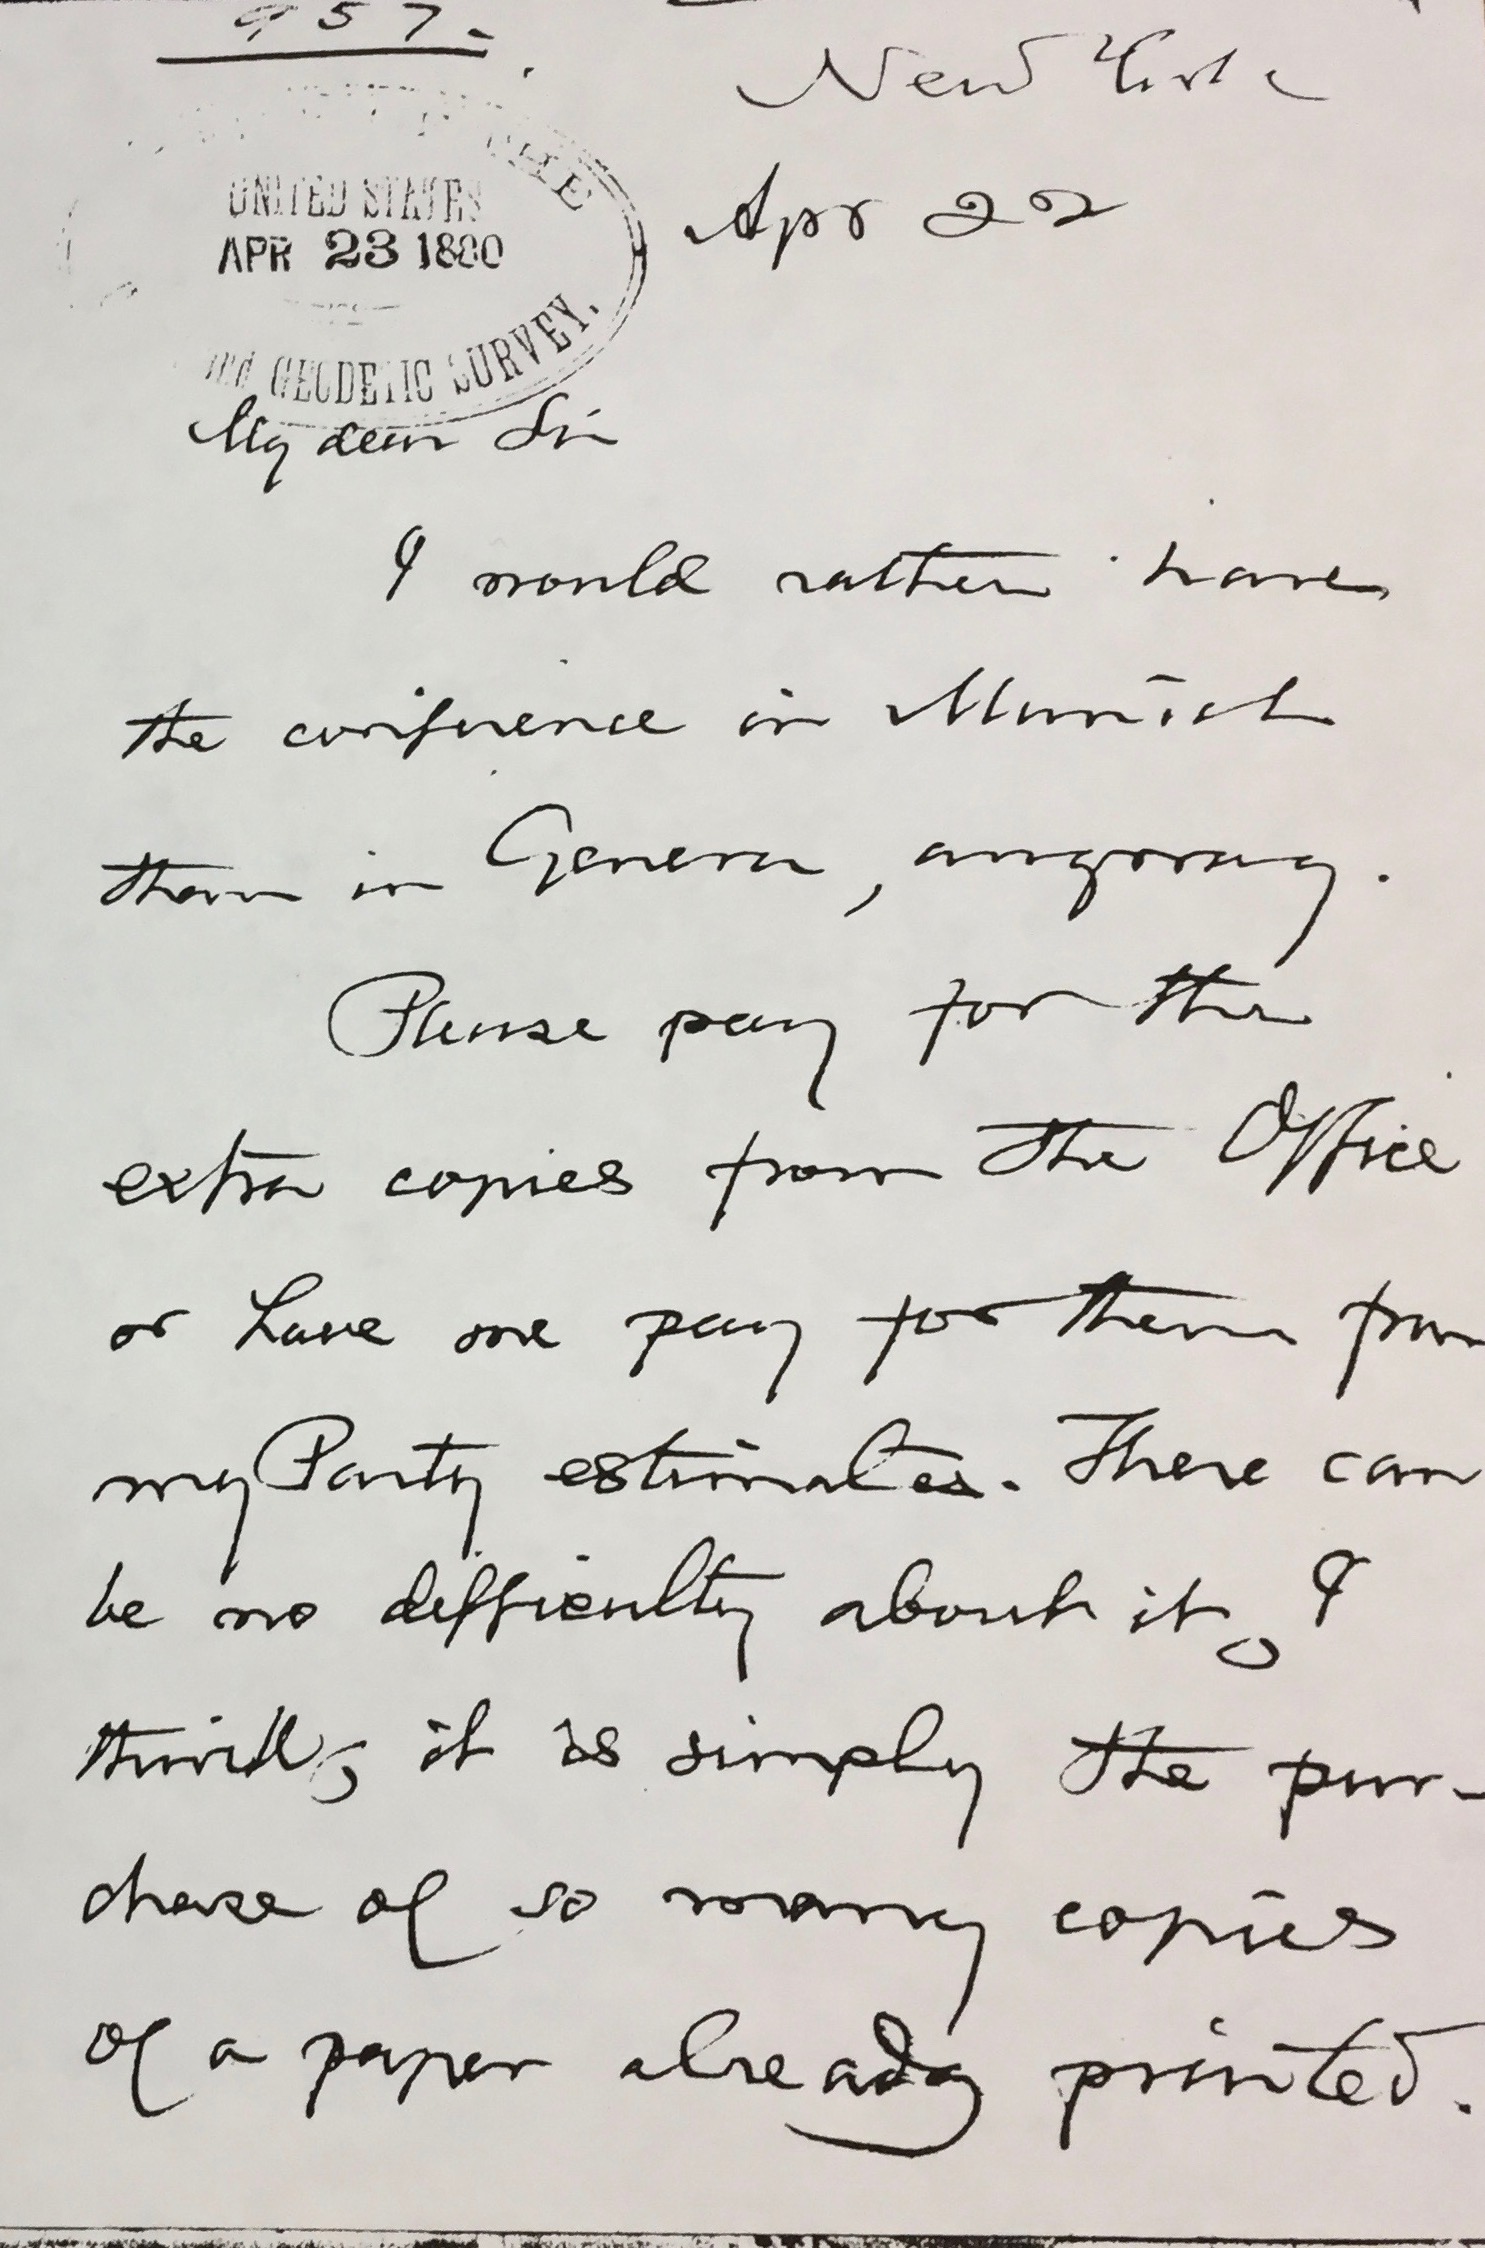 957.
New York
Apr 22
THE
UNITED STATES
APR 23 1880
and GEODETIC SURVEY.
My dear Sir
I would rather have
the conference in Munich
than in Geneva, anyway.
Please pay for the
extra copies from the Office
or have me pay for them from
my Party estimates. There can
be no difficulty about it, I
think, it is simply the pur-
chase of so many copies
of a paper already printed.